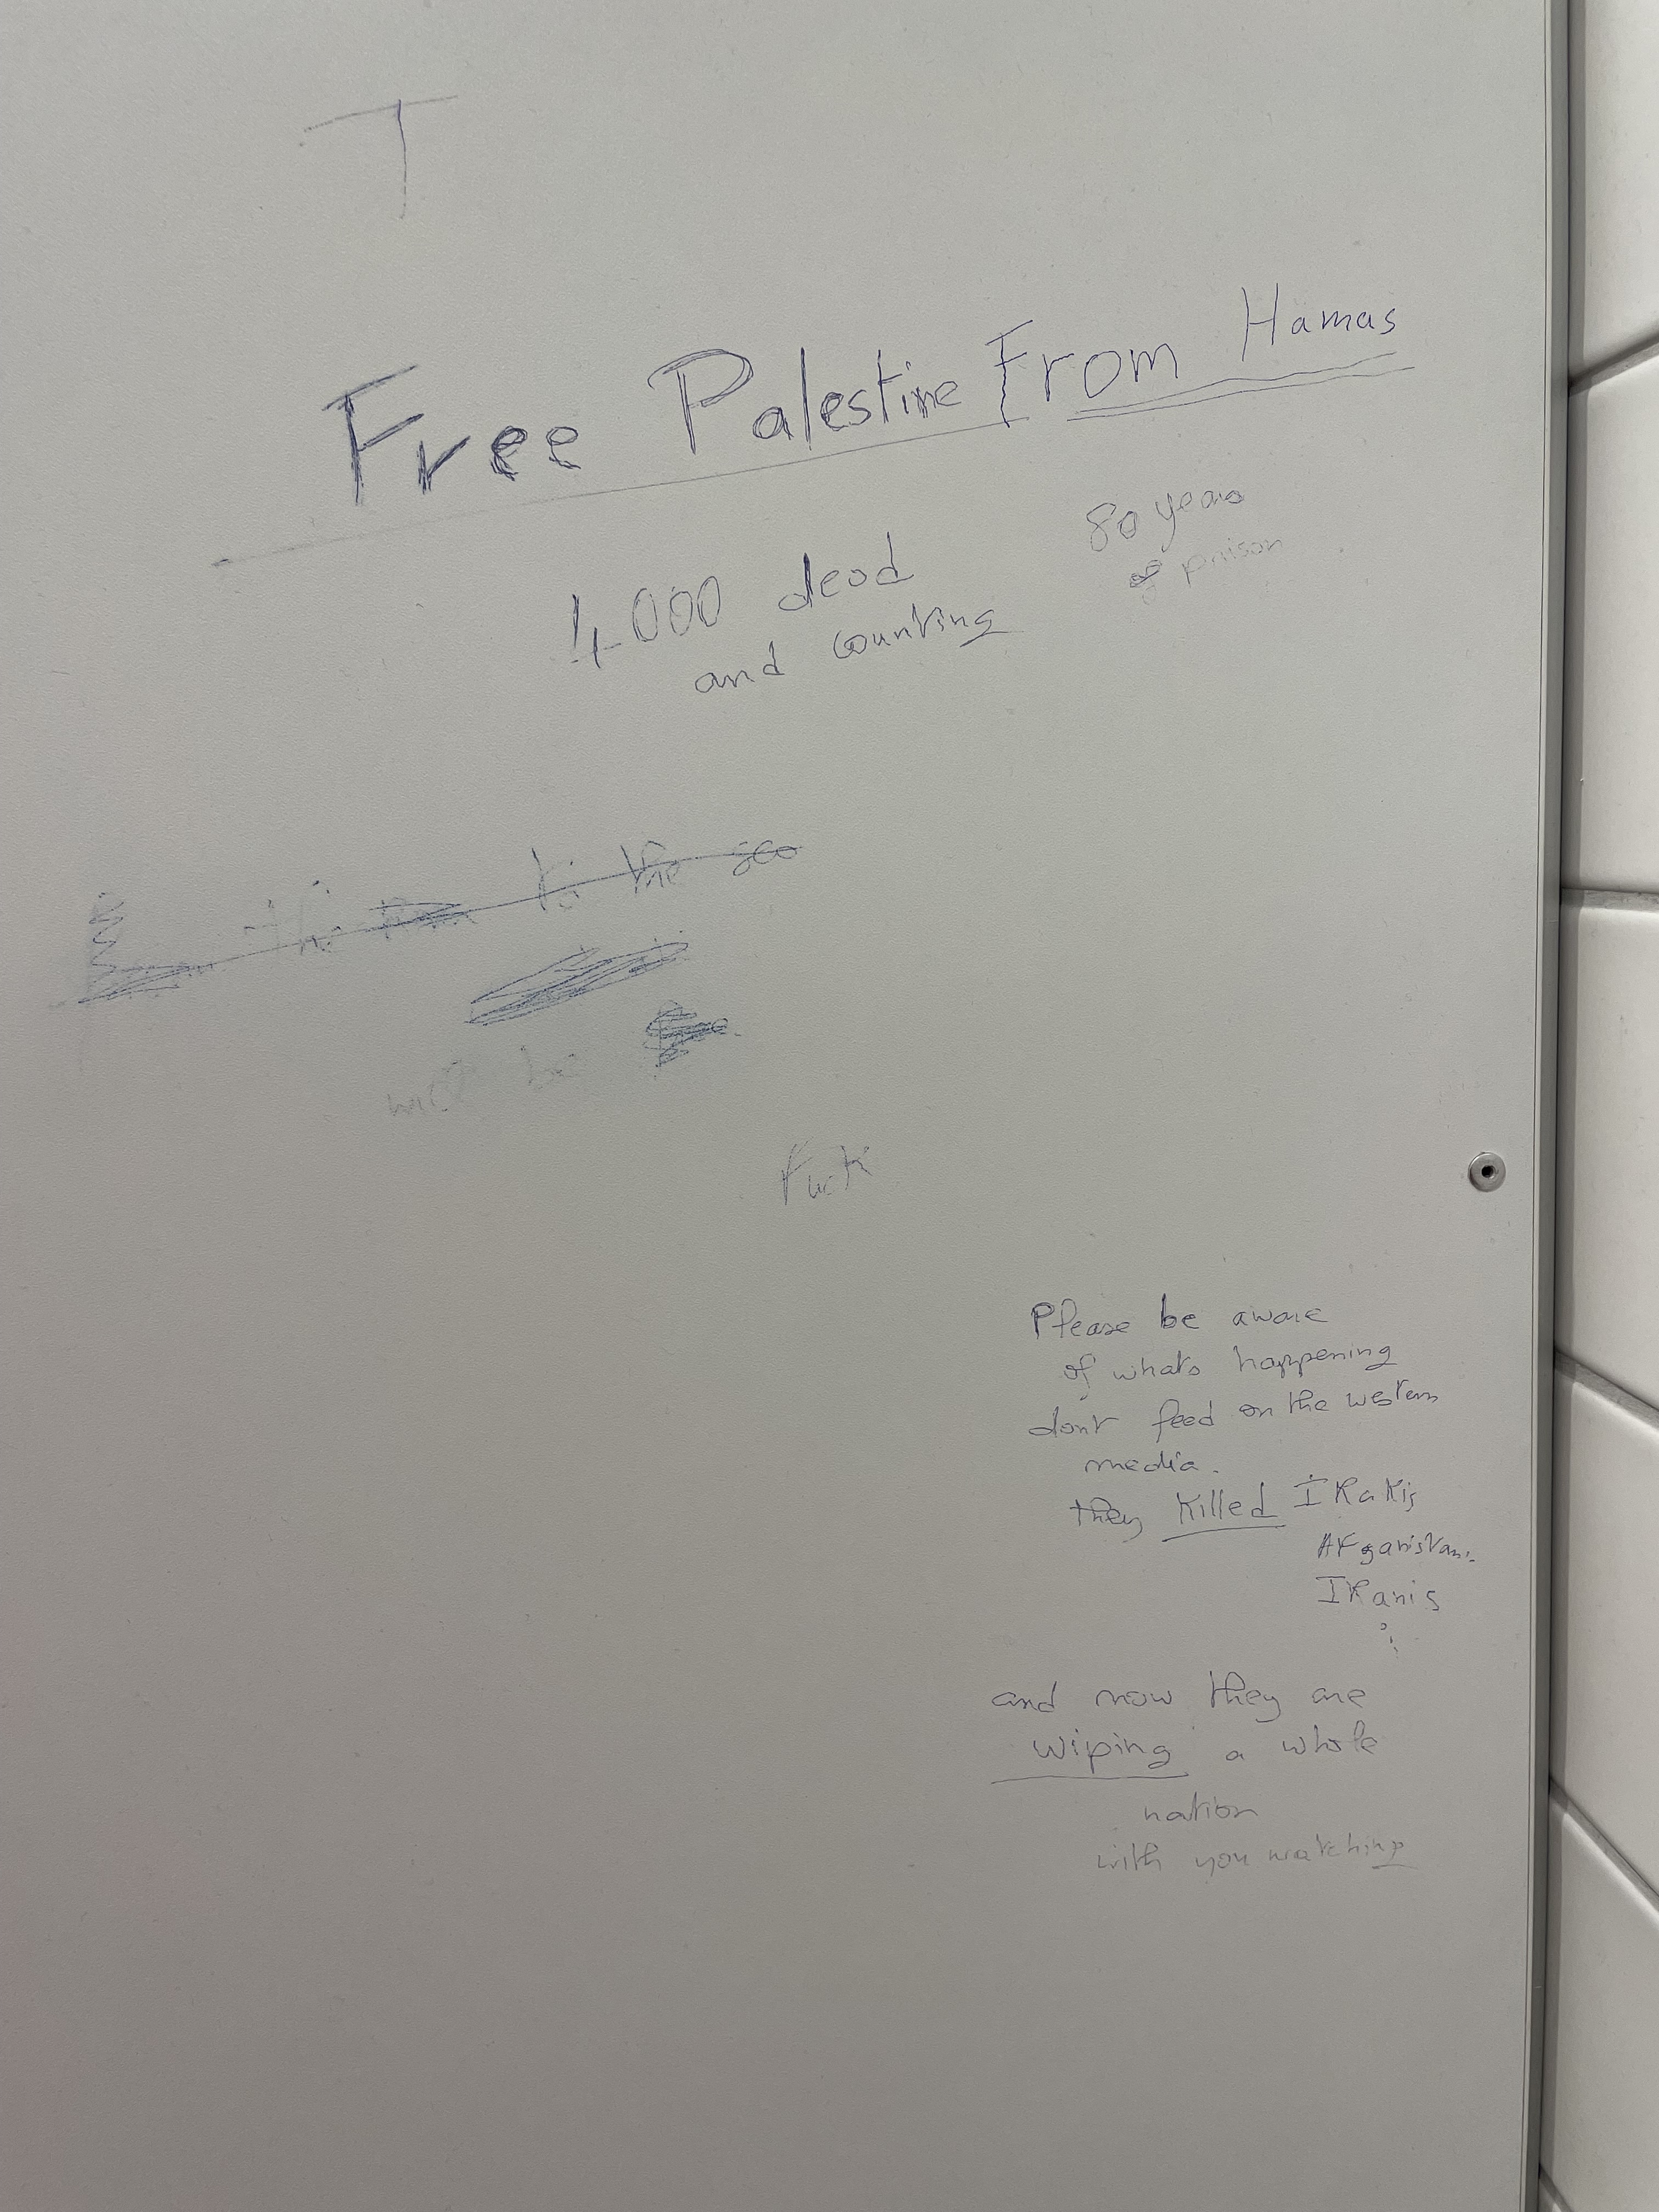 T
Free Palestine From Hamas
80 years
of prison
4000 dead
and counting
the to the sea
will be
Fuck
Please be aware
of whats happening
dont feed on the western
media.
they killed IRakis
AFganistani
IRanis
and now they are
wiping a whole
nation
with you watching